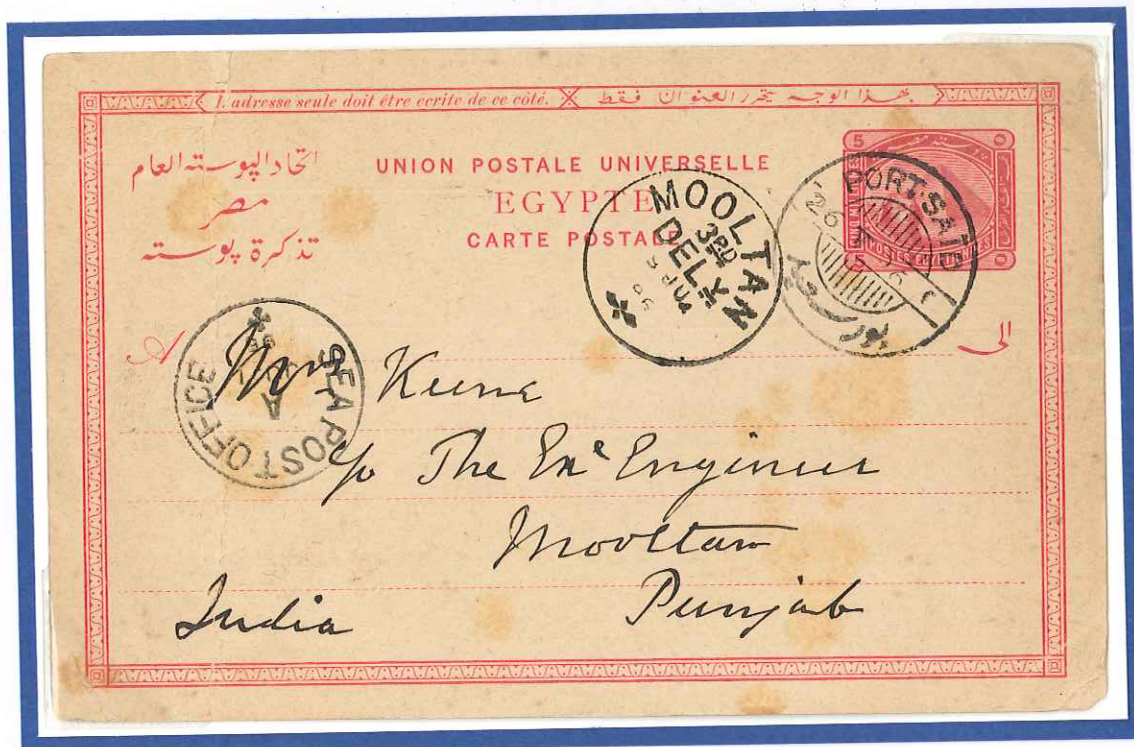 L'adresse seule doit être ecrite de ce côté. بهذا الوجه يحرر العنوان فقط
اتحاد البوسته العام
مصر
تذكرة بوسته
UNION POSTALE UNIVERSELLE
EGYPTE
CARTE POSTALE
5
PORT-SAID
26
MOOLTAN
3RD
DELY
SEA POST OFFICE
A
A الى
Mrs Keene
c/o The Exe Engineer
Mooltan
Punjab
India